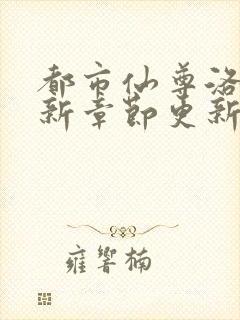 都市仙尊洛
新章節更新
雍響楠